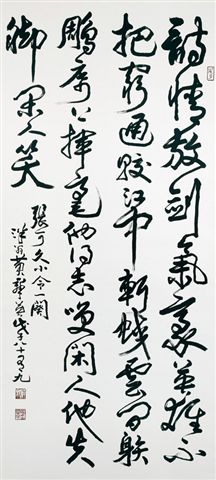 詩情放劍氣豪英雄不
把窮通較江中斬蛟雲間射
鵰席上揮毫他得志笑閑人他失
脚閑人笑
張可久小令一闋
黄 年八十有九